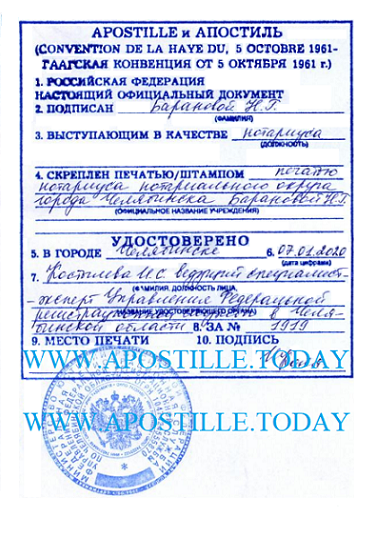 APOSTILLE и АПОСТИЛЬ
(CONVENTION DE LA HAYE DU, 5 OCTOBRE 1961-
ГААГСКАЯ КОНВЕНЦИЯ ОТ 5 ОКТЯБРЯ 1961 г.)
1. РОССИЙСКАЯ ФЕДЕРАЦИЯ
НАСТОЯЩИЙ ОФИЦИАЛЬНЫЙ ДОКУМЕНТ
2. ПОДПИСАН Барановой Н.Г.
(ФАМИЛИЯ)
3. ВЫСТУПАЮЩИМ В КАЧЕСТВЕ нотариуса
(ДОЛЖНОСТЬ)
4. СКРЕПЛЕН ПЕЧАТЬЮ/ШТАМПОМ печатью
нотариуса нотариального округа
города Челябинска Барановой Н.Г.
(ОФИЦИАЛЬНОЕ НАЗВАНИЕ УЧРЕЖДЕНИЯ)
УДОСТОВЕРЕНО
5. В ГОРОДЕ Челябинске 6. 07.01.2020
(дата цифрами)
7. Костылева И.С. ведущий специалист-
(ФАМИЛИЯ, ДОЛЖНОСТЬ ЛИЦА,
-эксперт Управления Федеральной
НАЗВАНИЕ УДОСТОВЕРЯЮЩЕГО ОРГАНА)
регистрационной службы в Челя-
бинской области 8. ЗА № 1919
9. МЕСТО ПЕЧАТИ 10. ПОДПИСЬ
WWW.APOSTILLE.TODAY
WWW.APOSTILLE.TODAY